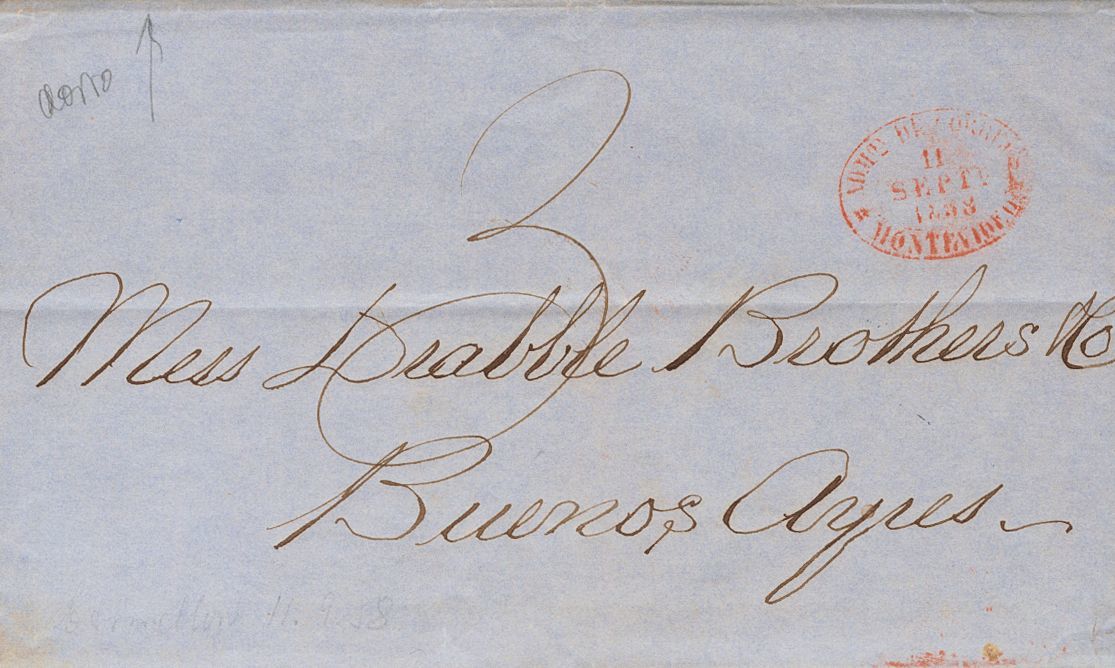 3
ADMON DE CORREOS
11
SEPTE
1858
MONTEVIDEO
Mess Drabble Brothers & Co
Buenos Ayres
11. 9. 58